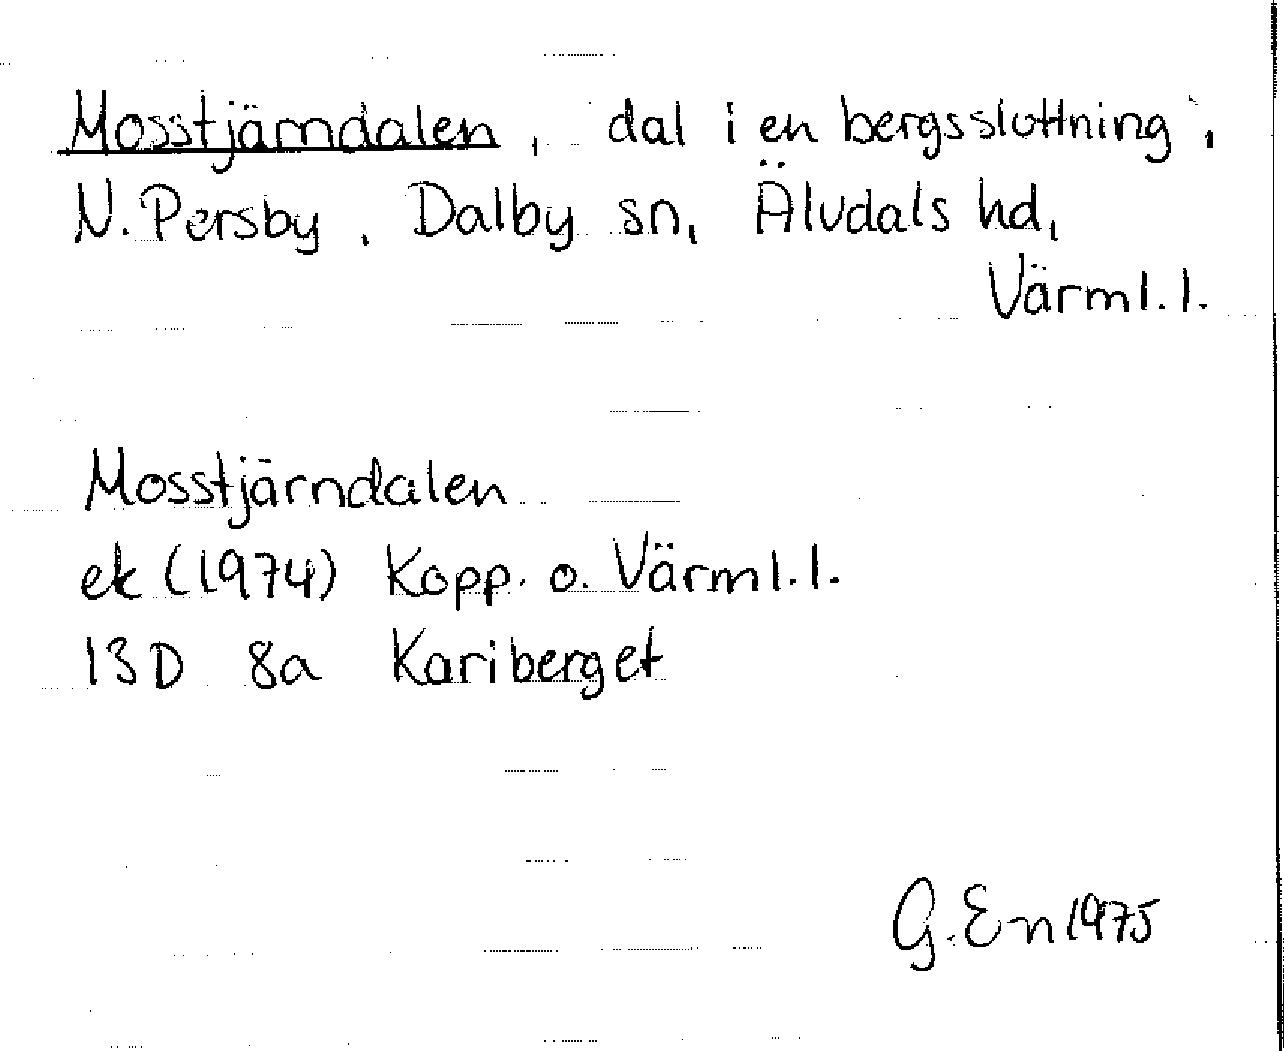 Mosstjärndalen, dal i en bergsslottning,
N. Persby, Dalby sn, Älvdals hd,
Värml. l.
Mosstjärndalen
ek (1974) Kopp. o. Värml. l.
13D 8a Kariberget
G. En 1975